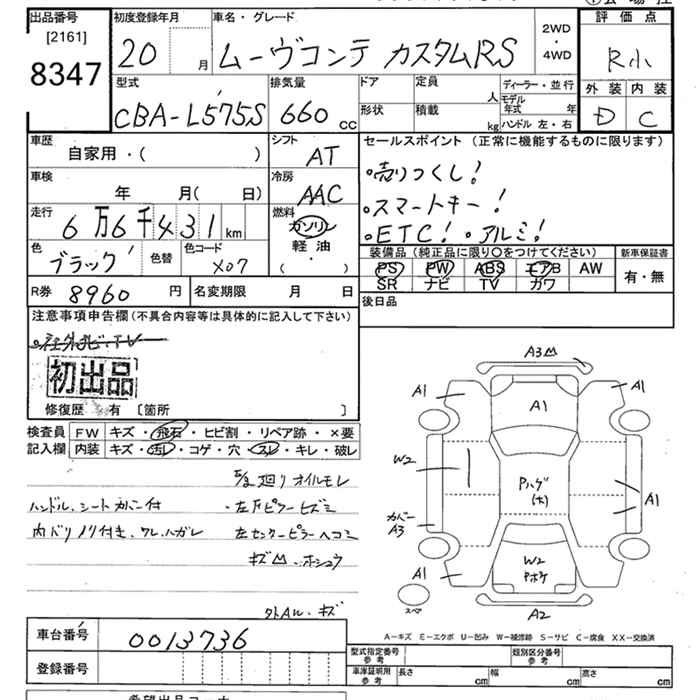 出品番号 初度登録年月 車名・グレード 評価点
[2161]
8347
20 月 ムーヴコンテ カスタムRS 2WD・4WD R小
型式 排気量 ドア 定員 人 ディーラー・並行 外装 内装
形状 積載 kg モデル年式 年 ハンドル 左・右
CBA-L575S 660 cc D C
車歴 シフト セールスポイント(正常に機能するものに限ります)
自家用・( ) AT
・売りつくし!
車検 冷房
年 月( 日) AAC
・スマートキー!
走行 燃料
6万6千431 km ガソリン
軽油・
( )
・ETC! ・アルミ!
色 色替 色コード
ブラック X07
装備品(純正品に限り○をつけてください) 新車保証書
PS PW ABS エアB AW 有・無
SR ナビ TV ガワ
R券 8960 円 名変期限 月 日 後日品
注意事項申告欄(不具合内容等は具体的に記入して下さい)
初出品
修復歴 有 [箇所 ]
検査員 FW キズ・飛石・ヒビ割・リペア跡・×要
記入欄 内装 キズ・汚レ・コゲ・穴・スレ・キレ・破レ
廻りオイルモレ
ハンドル、シートカバー付 ・左Fピラーヒズミ
内バリノリ付き、ワレ、ハガレ 左センターピラーヘコミ
キズ 凹 ホシュウ
外AW・キズ
A3凹
A1 A1 A1
W2
Pハゲ
(ホ)
A1
カバー
A3
A1 W2
Pボケ
A1
スペア
A2
A-キズ E-エクボ U-凹み W-補修跡 S-サビ C-腐食 XX-交換済
車台番号 0013736
登録番号
型式指定番号 参考 類別区分番号 参考
車庫証明用 参考 長さ cm 幅 cm 高さ cm